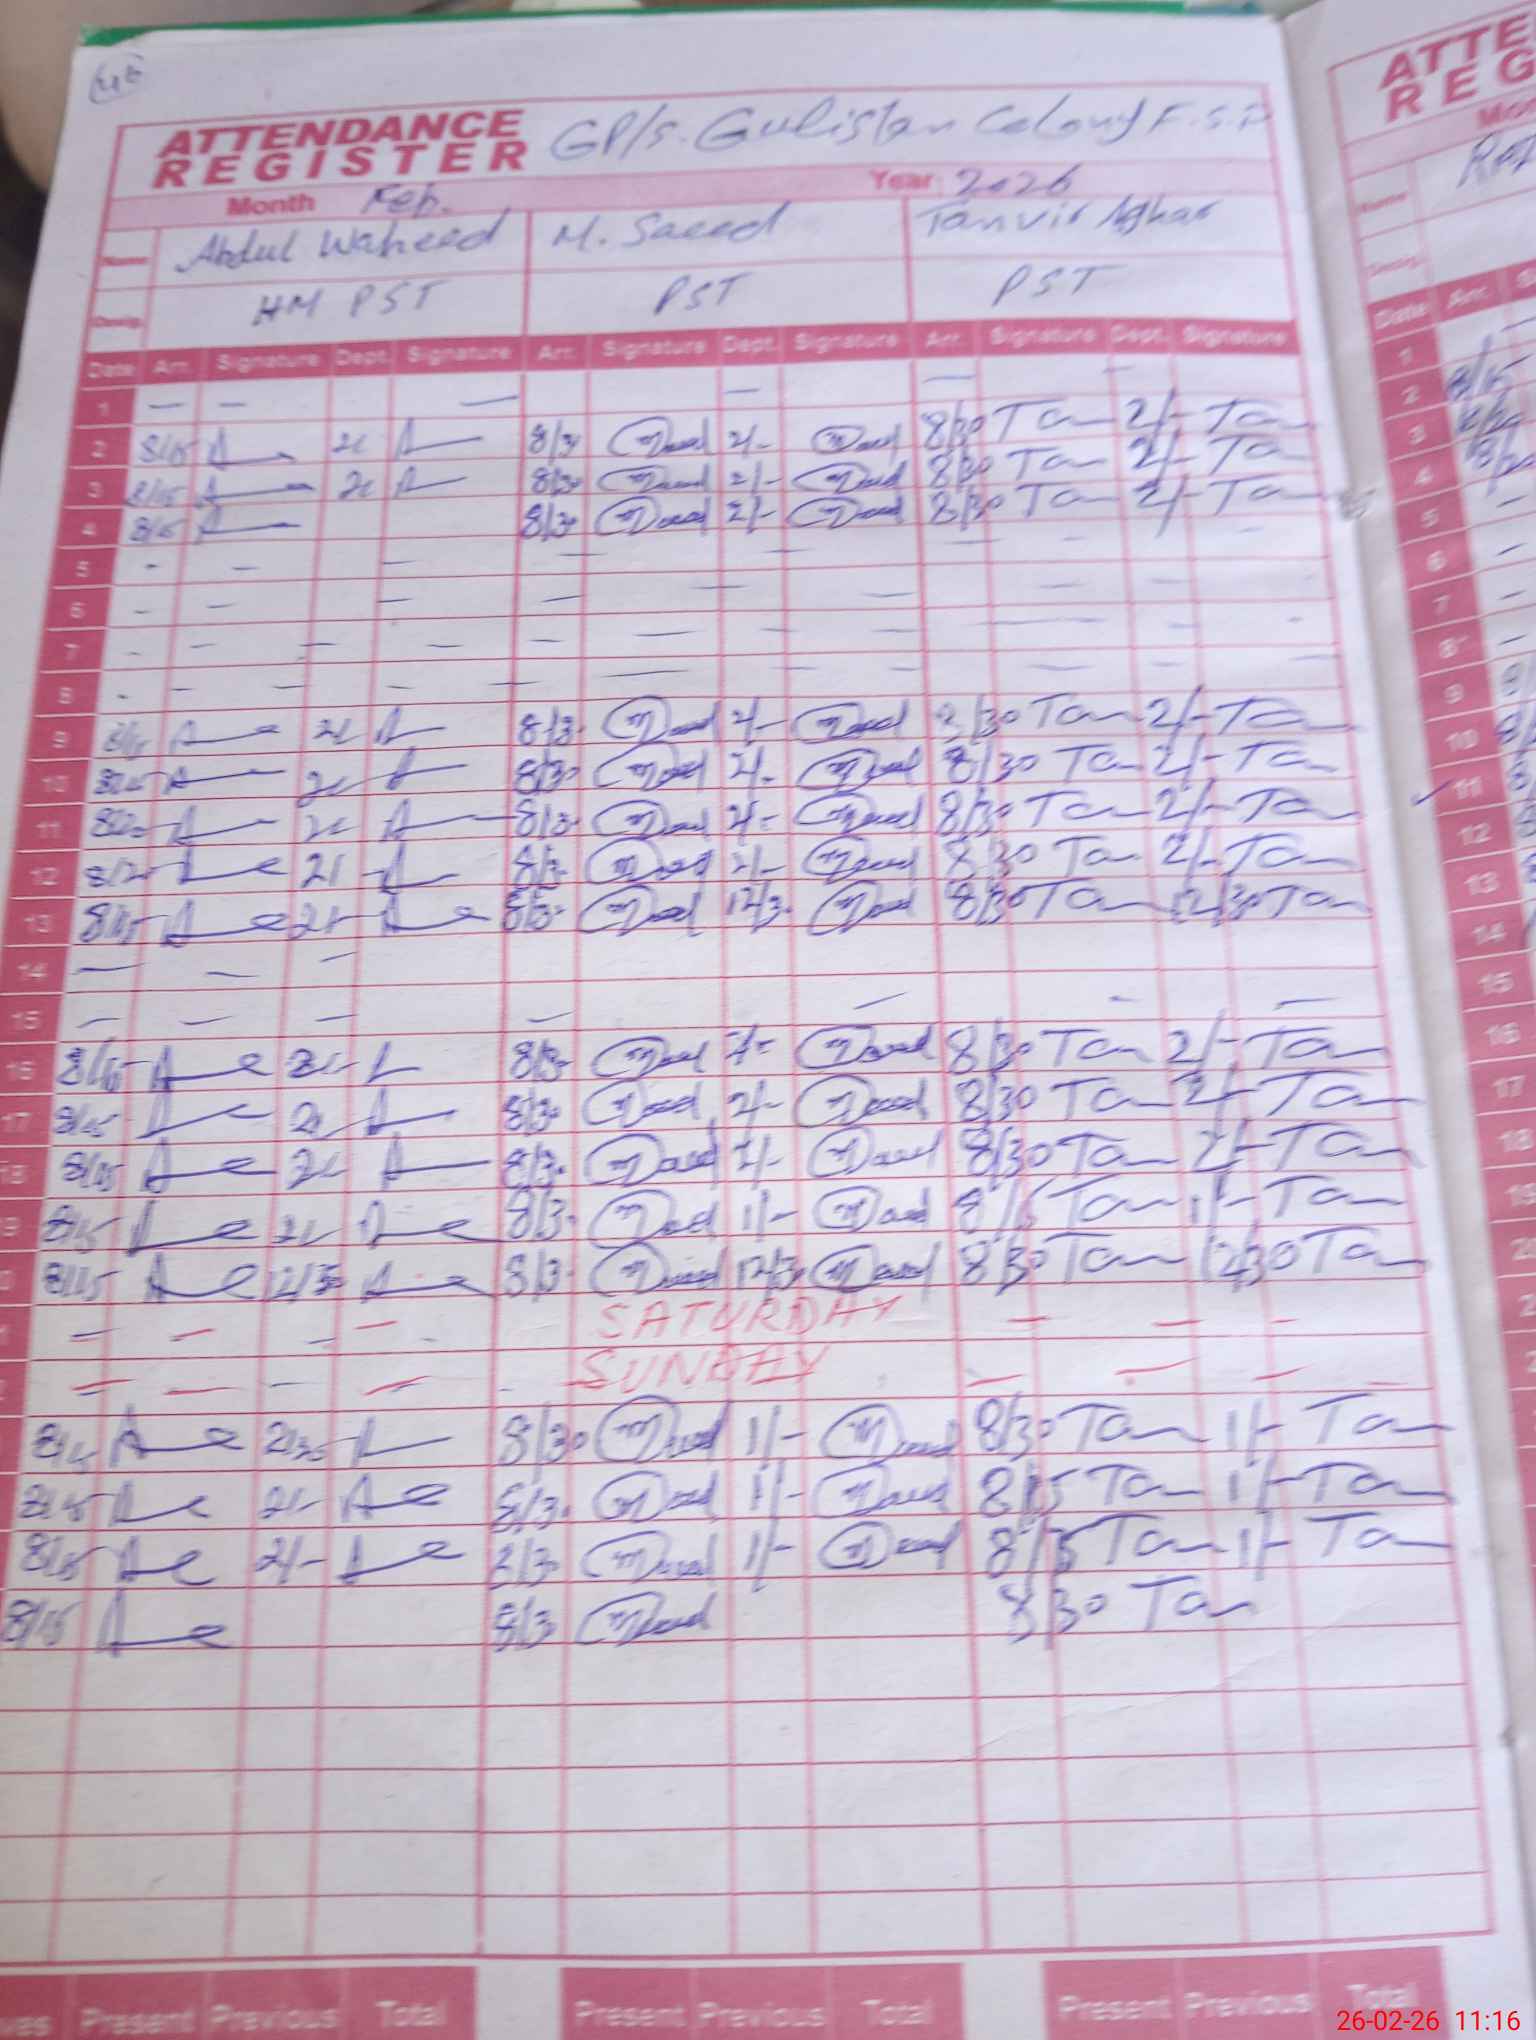 46
ATTENDANCE REGISTER GP/S. Gulistan Colony F.S.D
Month Feb. Year 2026
Name Abdul Waheed M. Saeed Tanvir Asghar
Desig. HM PST PST PST
Date Arr. Signature Dept. Signature Arr. Signature Dept. Signature Arr. Signature Dept. Signature
1 — — — — — —
2 8/15 2/- 8/30 2/- 8/30 Tan 2/- Tan
3 8/15 2/- 8/30 2/- 8/30 Tan 2/- Tan
4 8/15 8/30 2/- 8/30 Tan 2/- Tan
5
6
7
8
9 8/15 2/- 8/30 2/- 8/30 Tan 2/- Tan
10 8/15 2/- 8/30 2/- 8/30 Tan 2/- Tan
11 8/20 2/- 8/30 2/- 8/30 Tan 2/- Tan
12 8/20 2/- 8/30 2/- 8/30 Tan 2/- Tan
13 8/15 2/- 8/30 12/30 8/30 Tan 12/30 Tan
14
15
16 8/15 2/- 8/30 2/- 8/30 Tan 2/- Tan
17 8/15 2/- 8/30 2/- 8/30 Tan 2/- Tan
18 8/15 2/- 8/30 2/- 8/30 Tan 2/- Tan
9 8/15 2/- 8/30 1/- 8/15 Tan 1/- Tan
0 8/15 12/30 8/30 12/30 8/30 Tan 12/30 Tan
SATURDAY
SUNDAY
8/15 2/30 8/30 1/- 8/30 Tan 1/- Tan
8/15 2/- 8/30 1/- 8/15 Tan 1/- Tan
8/15 2/- 8/30 1/- 8/15 Tan 1/- Tan
8/15 8/30 8/30 Tan
ves Present Previous Total Present Previous Total Present Previous Total
ATTE
REG
Name
Desig.
Date Arr.
1
2 8/15
3 8/20
4 8/20
5
6
7
8
9
10
11
12
13
14
15
16
17
18
26-02-26 11:16